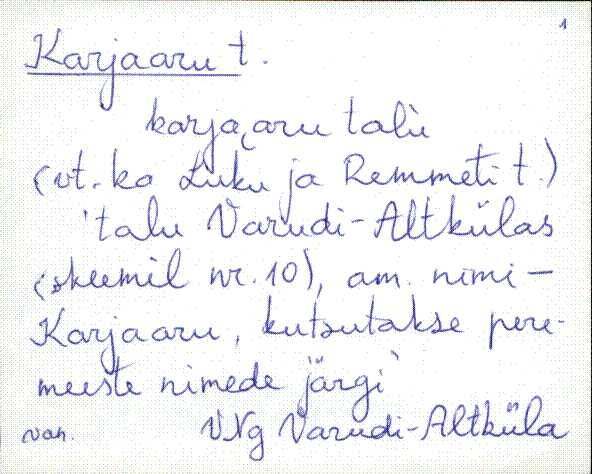 1
Karjaaru t.
karja,aru talu
(vt. ka Luku ja Remmeti t.)
'talu Varudi-Altkülas
(skeemil nr. 10), am. nimi –
Karjaaru, kutsutakse pere-
meeste nimede järgi'
van. VNg Varudi-Altküla